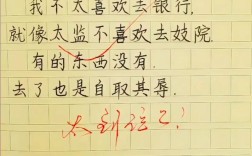 我不太喜欢去银行,
就像太监不喜欢去妓院.
有的东西没有.
去了也是自取其辱.
太到位了!